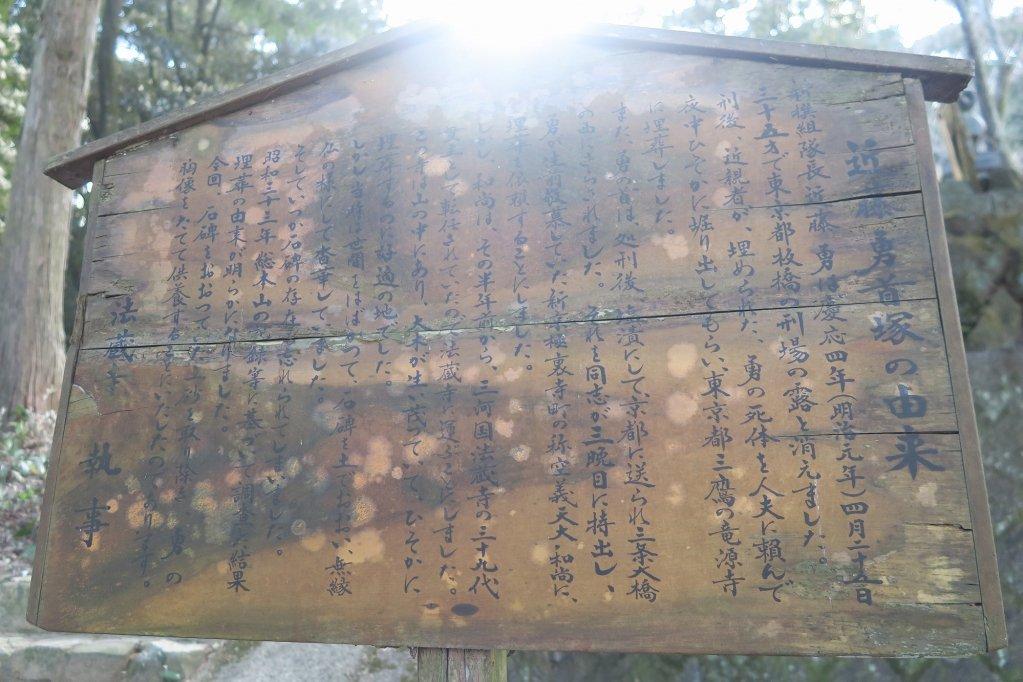 近藤勇首塚の由来
新撰組隊長近藤勇は慶応四年(明治元年)四月二十五日
三十五才で東京都板橋の刑場の露と消えました。
刑後、近親者が、埋められた、勇の死体を人夫に頼んで
夜中ひそかに堀り出してもらい、東京都三鷹の竜源寺
に埋葬しました。
また、勇の首は、処刑後、塩漬にして、京都に送られ三条大橋
の西にさらされました。それを同志が三晩目に持出し、
勇が生前敬慕していた新京極裏寺町の称空義天大和尚に、
埋葬を依頼することにしました。
しかし、和尚は、その半年前から、三河国法蔵寺の三十九代
貫主として転任されていたので法蔵寺に運ぶことにしました。
ここは山の中にあり、大木が生い茂って、いて、ひそかに
埋葬するのに好適の地でした。
しかし当時は世間をはばかって、石碑を土でおおい、無縁
仏の様にして香華して いました。
そしていつか石碑の存在も忘れられてしまいました。
昭和三十三年総本山の記録等に基づいて調査の結果
埋葬の由来が明らかになりました。
今回、石碑をおおっていた土砂を取り除き、勇の
胸像をたてて供養することにいたしたのであります。
法蔵寺 執事